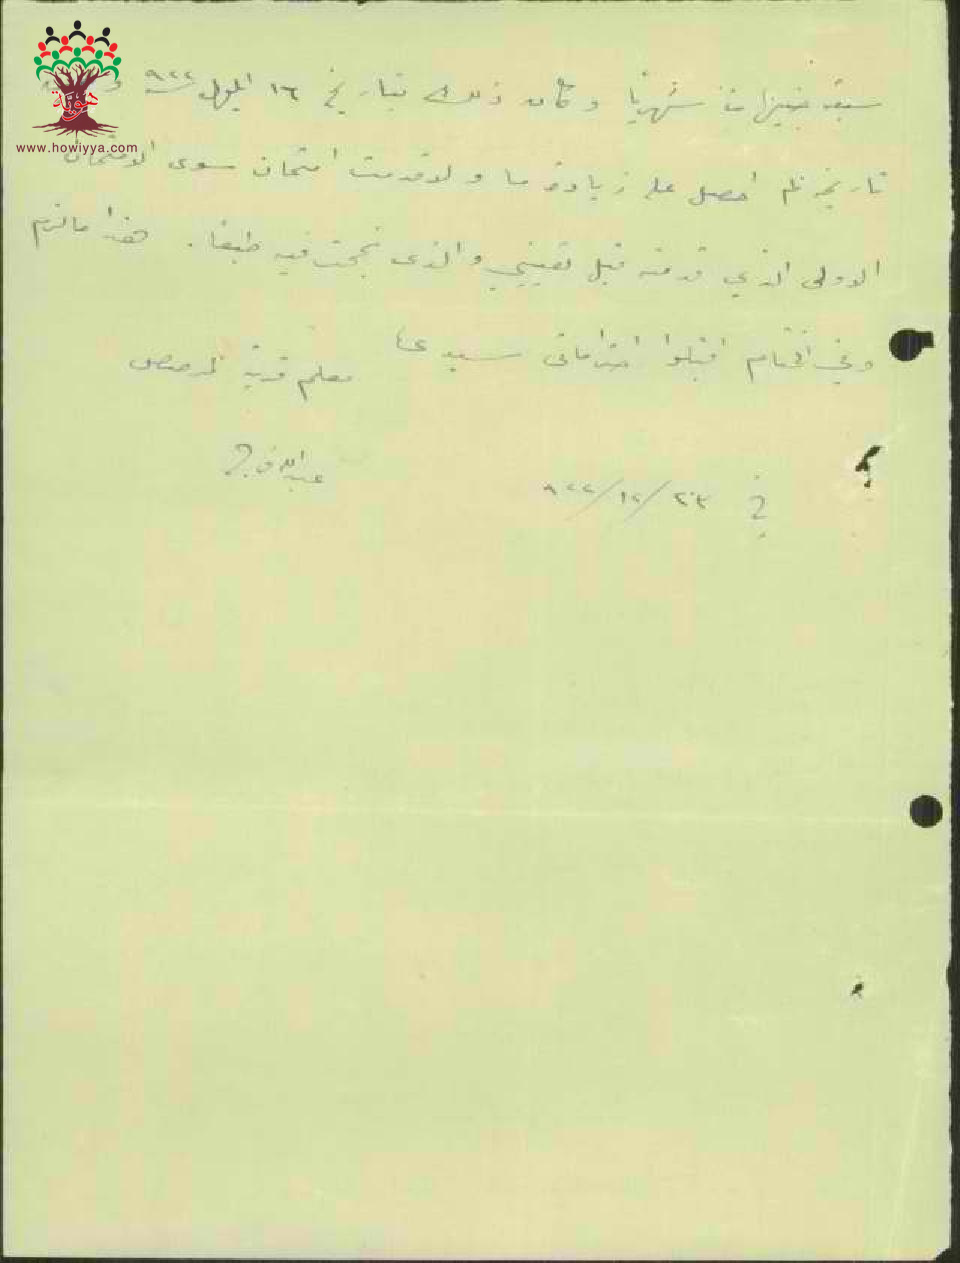 هوية
www.howiyya.com
سبعة جنيهات شهرياً وكان ذلك بتاريخ ١٦ ايلول ٩٢٢
تاريخه لم احصل على زيادة ما ولا قدمت امتحان سوى الامتحان
الاولي الذي قدمته قبل تعييني والذي نجحت فيه طبعا. هذا ما لزم
وفي الختام اقبلوا احتراماتي سيدي
معلم قرية
عبدالله
في ٢٣/١٢/٩٢٢